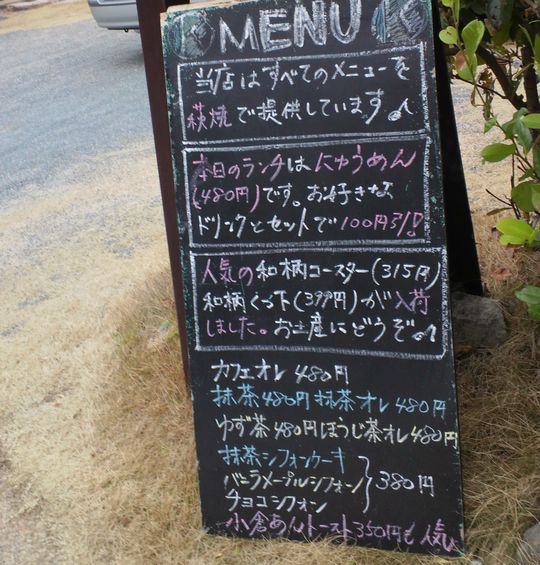 MENU
当店はすべてのメニューを
萩焼で提供しています♪
本日のランチはにゅうめん
(480円)です。お好きな
ドリンクとセットで100円引!!
人気の和柄コースター(315円)
和柄くつ下(399円)が入荷
しました。お土産にどうぞ♪
カフェオレ 480円
抹茶480円 抹茶オレ 480円
ゆず茶480円 ほうじ茶オレ480円
抹茶シフォンケーキ
バニラメープルシフォン 380円
チョコシフォン
小倉あんトースト350円も人気